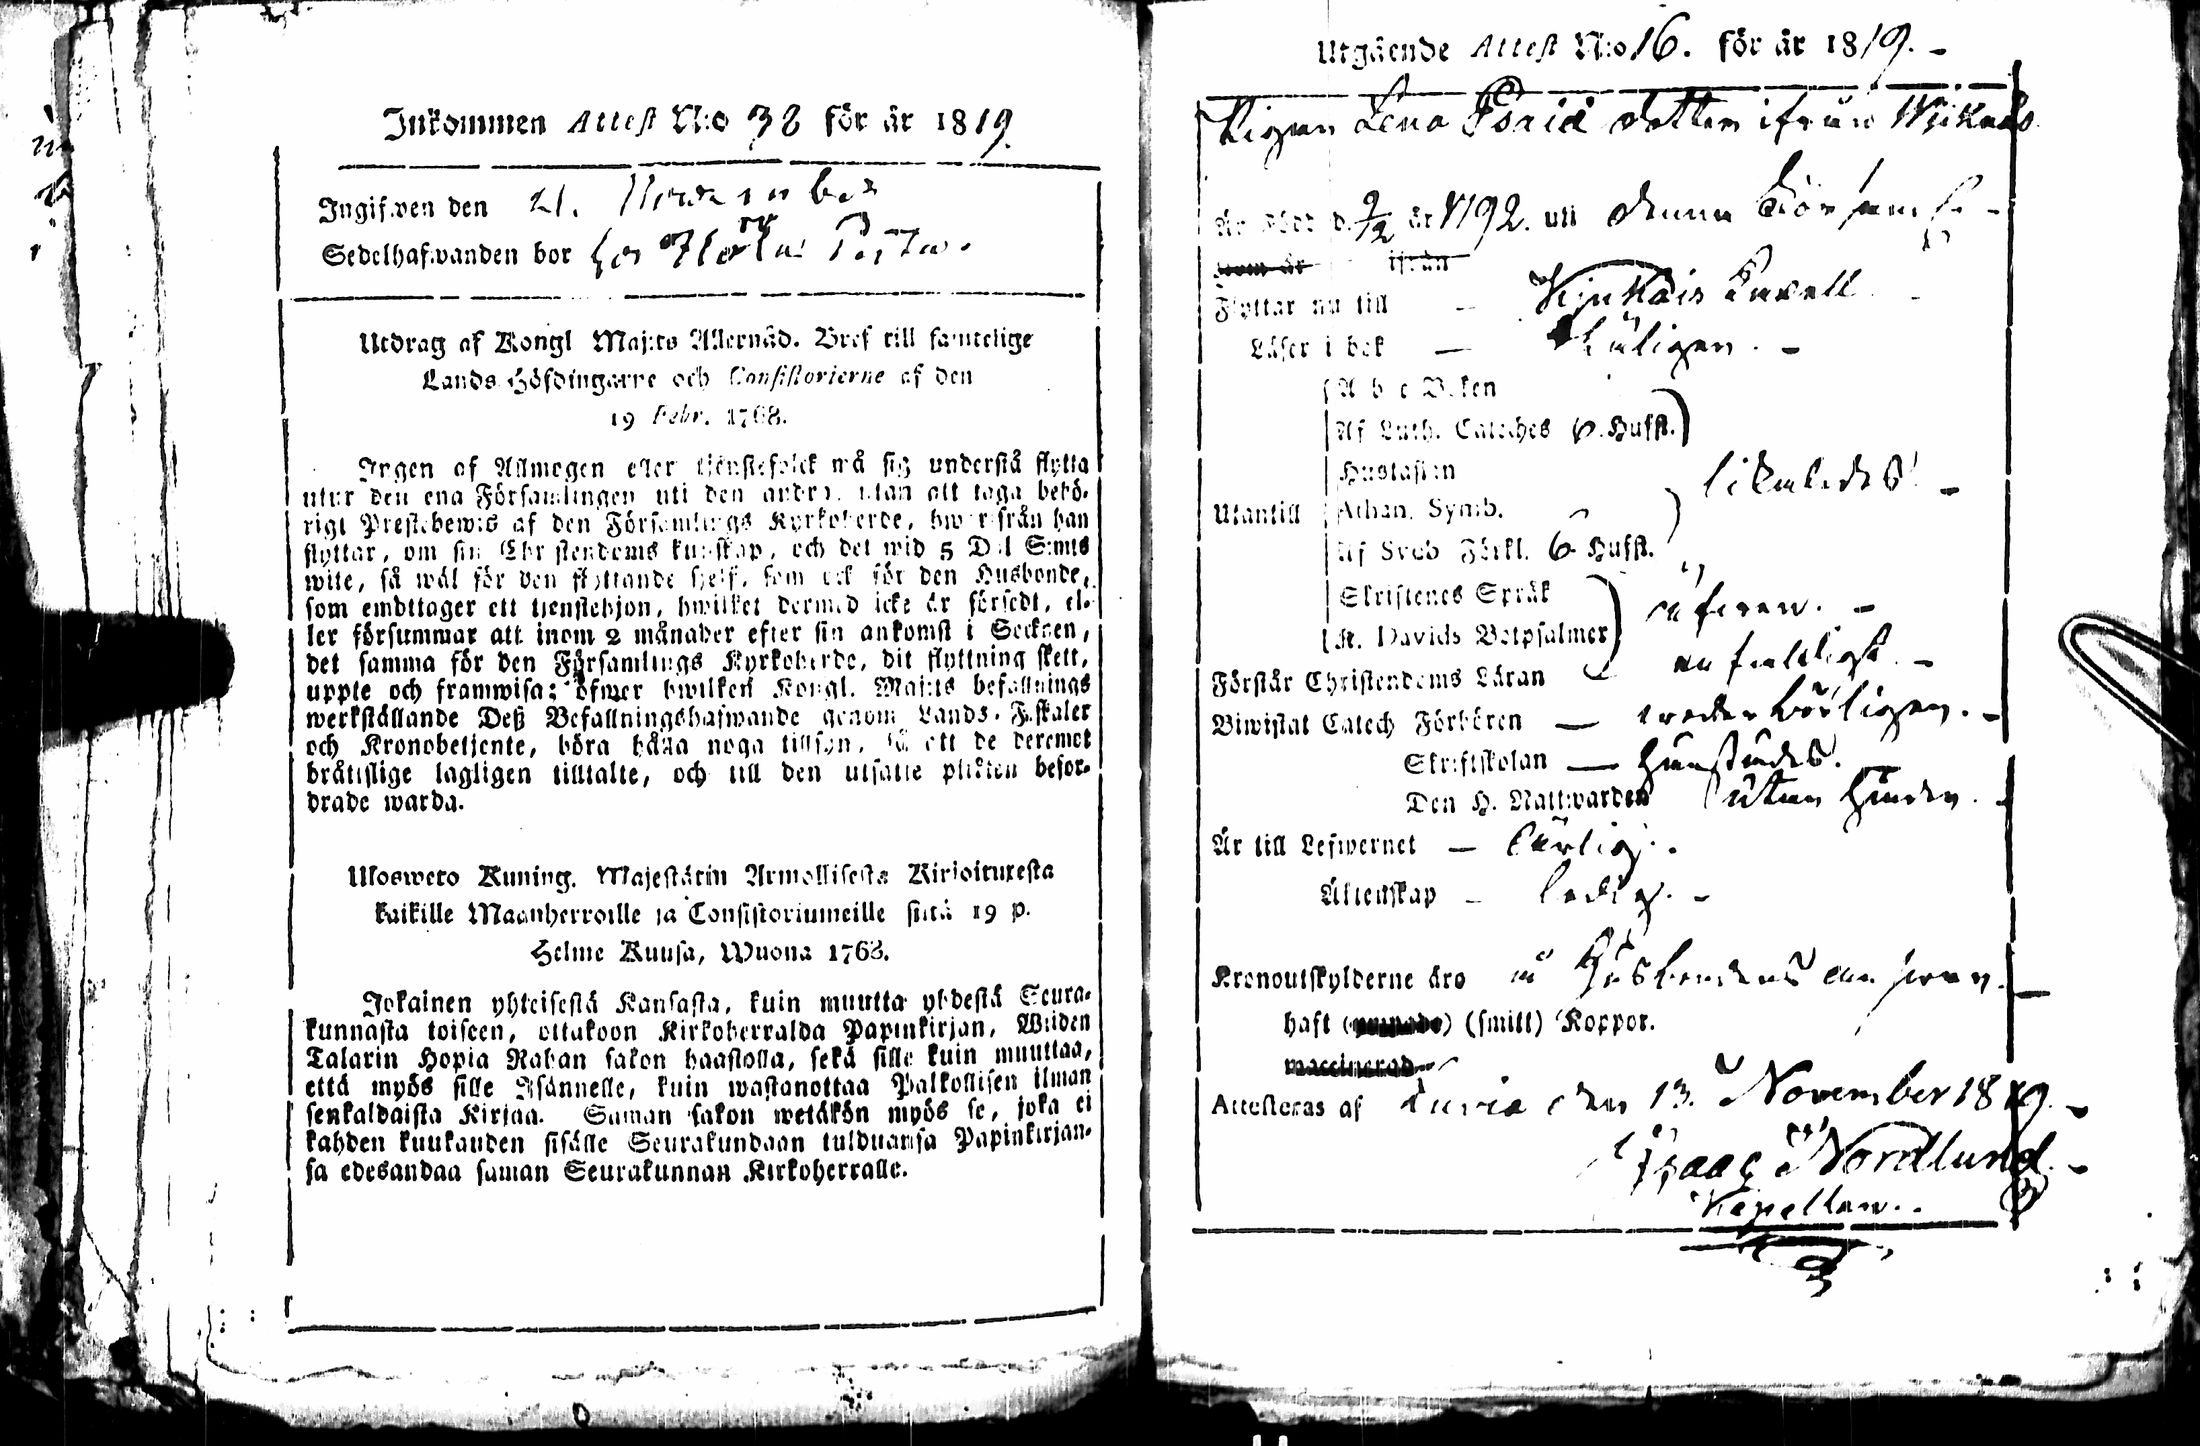 Inkommen Attest N:o 38 för år 1819.
Ingifwen den 21. November
Sedelhafwanden bor hos
Utdrag af Kongl Maj:ts Allernåd. Bref till samtelige
Lands Höfdingarne och Consistorierne af den
19 Febr. 1768.
Ingen af Allmogen eller tjenstefolck må sig understå flytta
utur den ena Församlingen uti den andra, utan att taga behö-
rigt Prestebewis af den Församlings Kyrkoherde, hwarifrån han
flyttar, om sin Christendoms kunskap, och det wid 5 Dal S:mts
wite, så wäl för den flyttande sjelf, som ock för den Husbonde,
som emottager ett tjenstehjon, hwilket dermed icke är försedt, el-
ler försummar att inom 2 månader efter sin ankomst i Socknen,
det samma för den Församlings Kyrkoherde, dit flyttning skett,
uppte och framwisa; öfwer hwilken Kongl. Maj:ts befallnings
werkställande Deß Befallningshafwande genom Lands-Fiskaler
och Kronobetjente, böra hålla noga tillsyn, så att de deremot
bråttslige lagligen tilltalte, och till den utsatte plikten befor-
drade warda.
Ulosweto Kuning. Majestätin Armollisesta Kirjoituxesta
kaikille Maanherroille ja Consistoriumeille siitä 19 p.
Helme Kuusa, Wuona 1768.
Jokainen yhteisestä Kansasta, kuin muutta yhdestä Seura-
kunnasta toiseen, ottakoon Kirkoherralda Papinkirjan, Wiiden
Talarin Hopia Rahan sakon haastolla, sekä sille kuin muuttaa,
että myös sille Isännelle, kuin wastanottaa Palkollisen ilman
senkaldaista Kirjaa. Saman sakon wetäkön myös se, joka ei
kahden kuukauden sisälle Seurakundaan tulduansa Papinkirjan-
sa edesandaa saman Seurakunnan Kirkoherralle.
Utgående Attest N:o 16. för år 1819.
Pigan Lena dotter ifrån
Är Född d. 9/2 år 1792. uti denna Församl.
som är ifrån
Flyttar nu till Kjukais Capell
Läser i bok
A b c Boken
Af Luth. Cateches 6. Hufst.
Hustaflan
Utantill Athan. Symb. likaledes
Af Sveb Förkl. 6 Hufst.
Skriftenes Språk
K. Davids Botpsalmer
Förstår Christendoms Läran enfaldigt
Biwistat Catech Förhören wederbörligen.
Skriftskolan
Den H. Nattwarden utan hinder.
Är till Lefwernet ärlig.
Äktenskap ledig.
Kronoutskylderne äro å Husbondens answar.
haft (smitt) Koppor.
vaccinerad
Attesteras af Eurie den 13. November 1819.
Isaac Nordlund.
Kapellan.